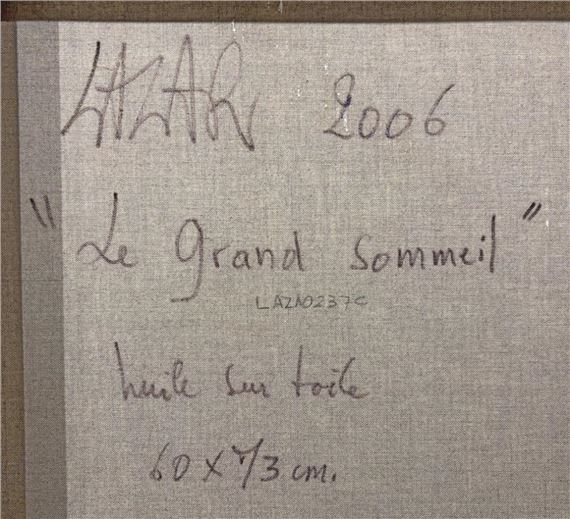 LAZAR 2006
"Le grand sommeil"
LAZA0237C
huile sur toile
60 x 73 cm.